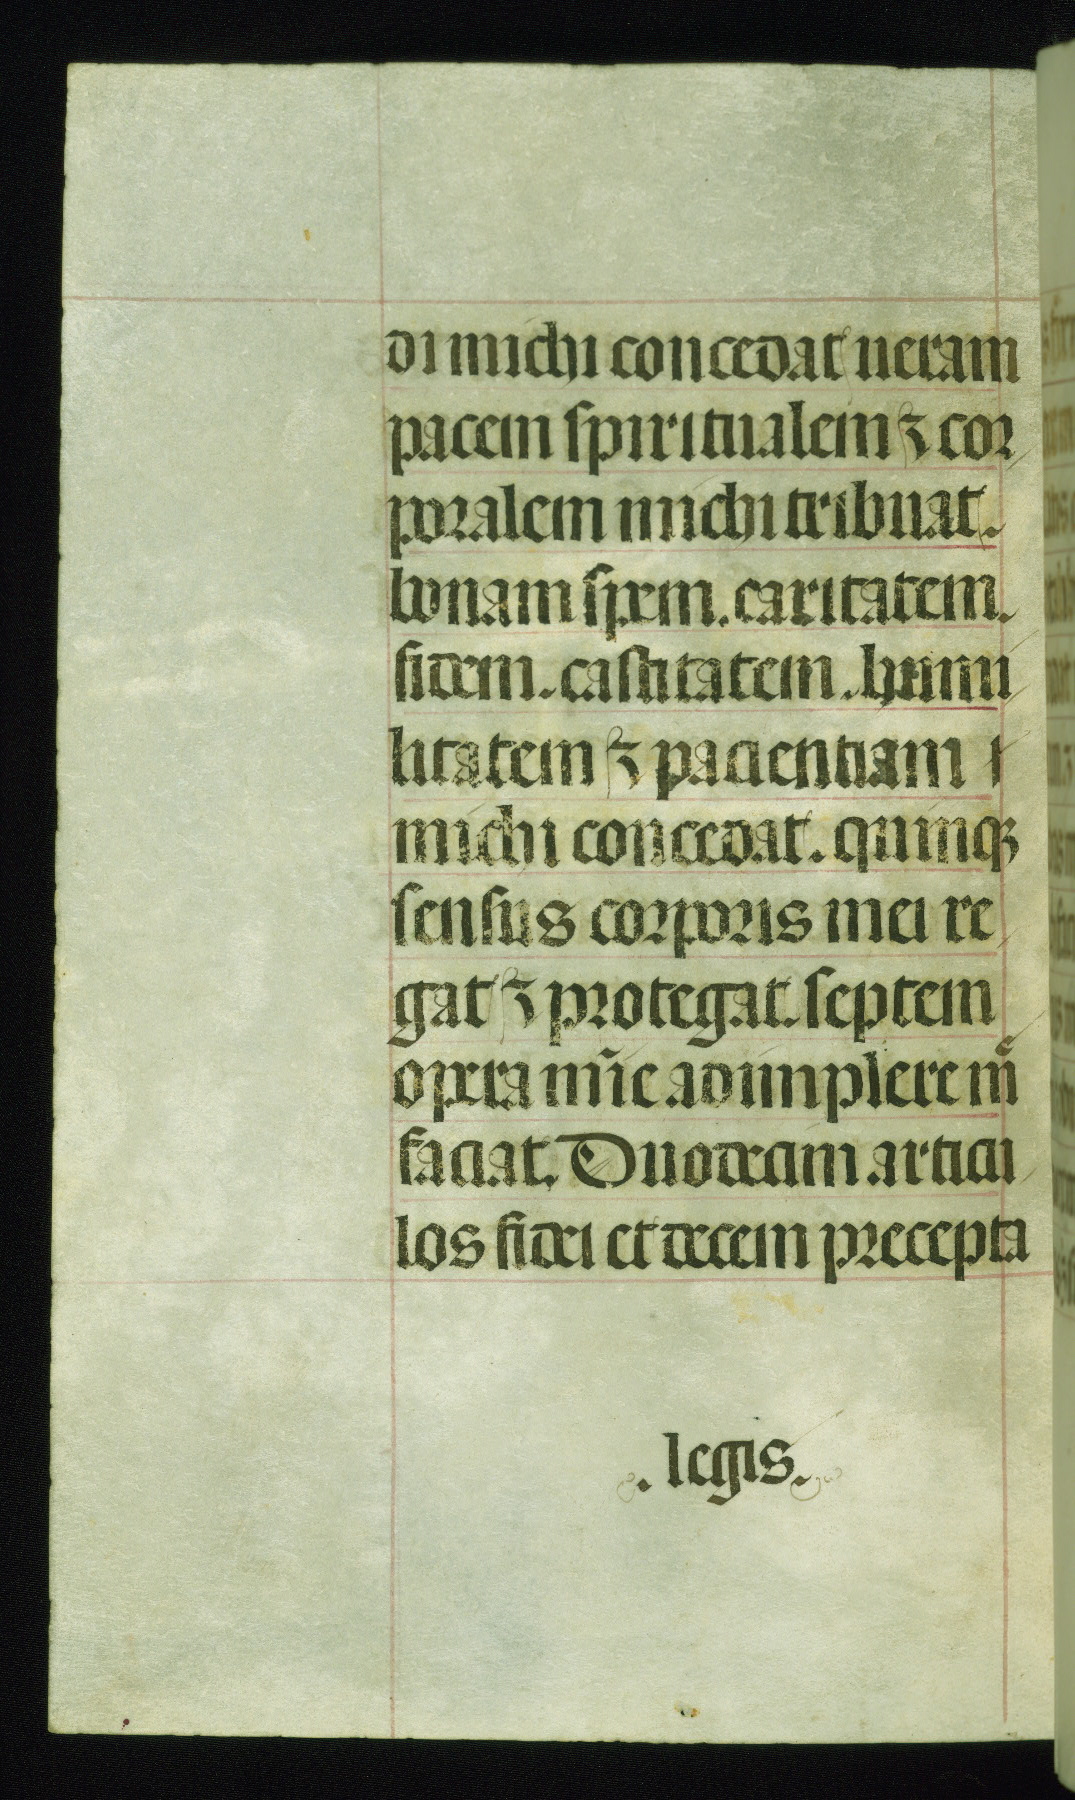 di michi concedat ueram
pacem spiritualem ⁊ cor
poralem michi tribuat.
bonam spem. caritatem.
fidem. castitatem. humi
litatem ⁊ pacientiam
michi concedat. quinqꝫ
sensus corporis mei re
gat ⁊ protegat. septem
opera mīe adimplere m̄
faciat. Duodecim articu
los fidei et decem precepta
. legis.